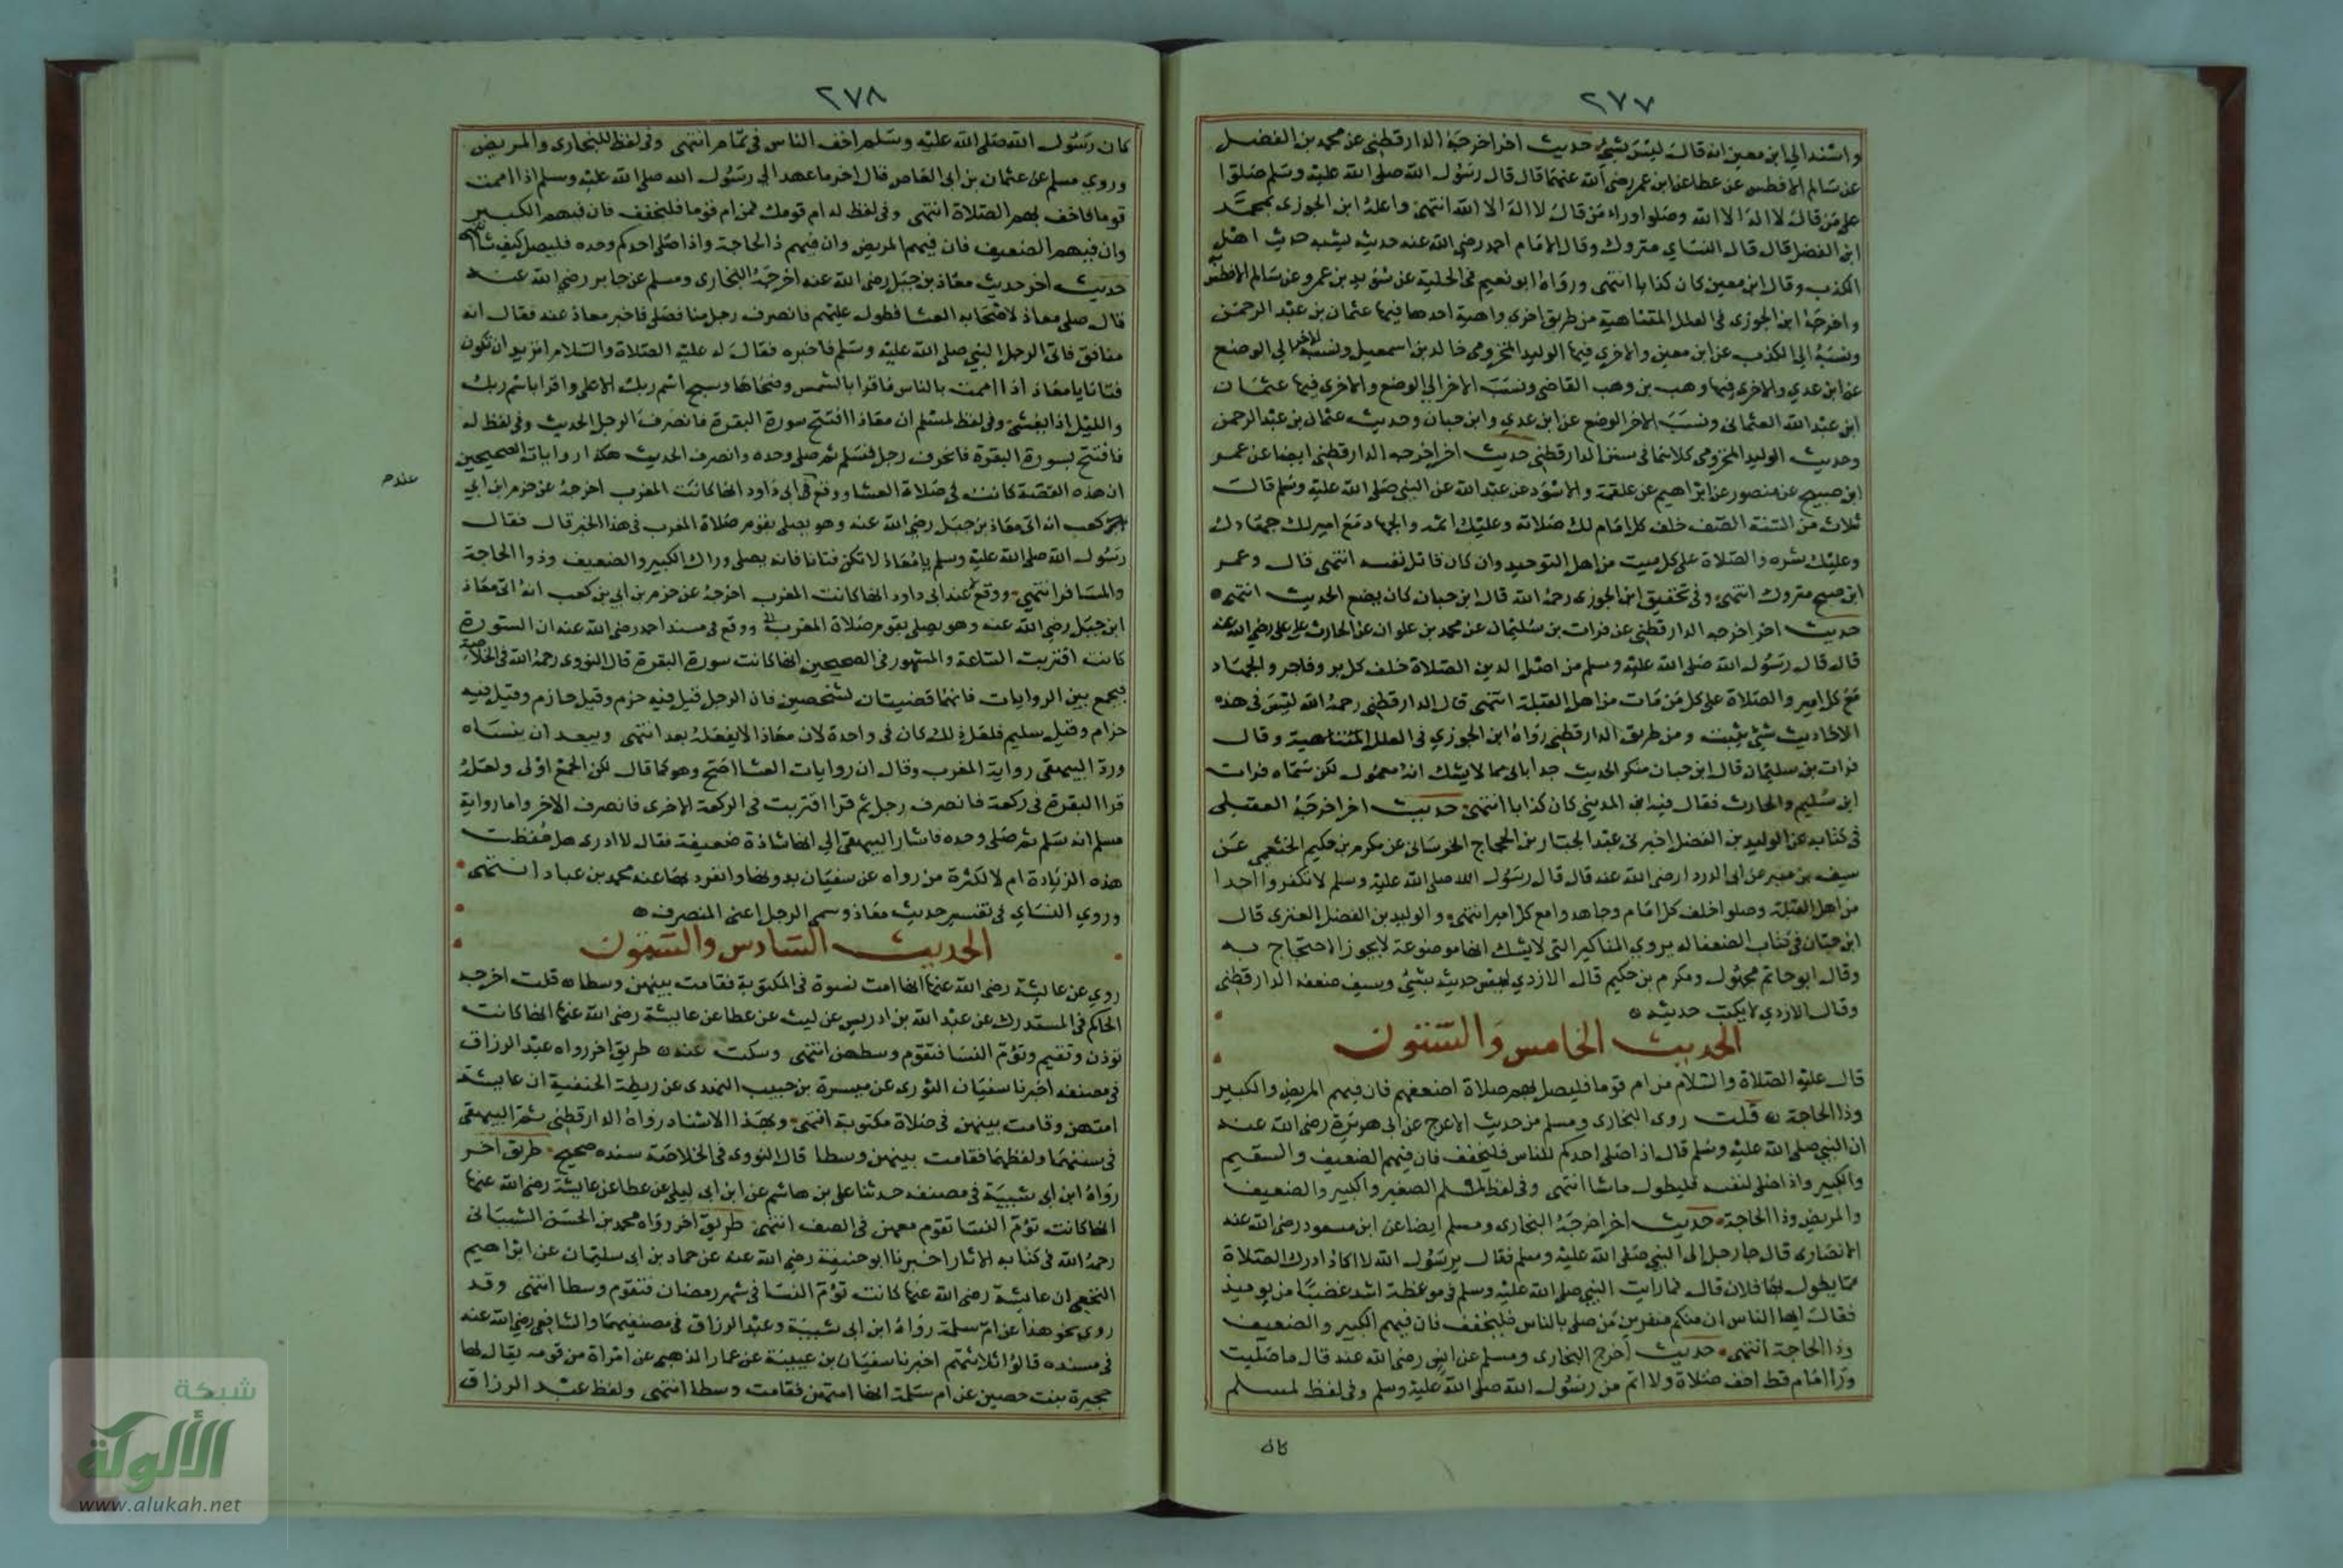 ٢٧٧
واسند الي ابن معين انه قال ليس بشئ حديث اخر اخرجه الدارقطني عن محمد بن الفضل
عن سالم الافطس عن عطا عن ابن عمر رضي الله عنهما قال قال رسول الله صلى الله عليه وسلم صلوا
على من قال لا اله الا الله وصلوا وراء من قال لا اله الا الله انتهى واعله ابن الجوزى بمحمد
ابن الفضل قال قال النساي متروك وقال الامام احمد رضي الله عنه حديثه يشبه حديث اهل
الكذب وقال ابن معين كان كذابا انتهى ورواه ابو نعيم في الحلية عن سويد بن عمرو عن سالم الافطس به
واخرجه ابن الجوزى في العلل المتناهية من طريق اخرى واهية احدها فيها عثمان بن عبد الرحمن
ونسبه الي الكذب عن ابن معين والاخري فيها الوليد المخزومى خالد بن اسمعيل ونسب الاخر الي الوضع
عن ابن عدي والاخرى فيها وهب بن وهب القاضى ونسب الاخر الي الوضع والاخرى فيها عثمان
ابن عبد الله العثمانى ونسب الاخر الوضع عن ابن عدي وابن حبان وحديث عثمان بن عبد الرحمن
وحديث الوليد المخزومى كلاهما في سنن الدارقطني حديث اخر اخرجه الدارقطني ايضا عن عمر
ابن صبيح عن منصور عن ابراهيم عن علقمة والاسود عن عبد الله عن النبي صلى الله عليه وسلم قال
ثلاث من السنة الصف خلف كل امام لك صلاته وعليك اثمه والجهاد مع امير لك جهادك
وعليك شره والصلاة على كل ميت من اهل التوحيد وان كان قاتل نفسه انتهى قال وعمر
ابن صبح متروك انتهى وفى تحقيق ابن الجوزى رحمه الله قال ابن حبان كان يضع الحديث انتهى
حديث اخر اخرجه الدارقطني عن فرات بن سليمان عن محمد بن علوان عن الحارث عن علي رضي الله عنه
قال قال رسول الله صلى الله عليه وسلم من اصل الدين الصلاة خلف كل بر وفاجر والجهاد
مع كل امير والصلاة على كل من مات من اهل القبلة انتهى قال الدارقطني رحمه الله ليس في هذه
الاحاديث شئ يثبت ومن طريق الدارقطني رواه ابن الجوزي في العلل المتناهية وقال
فرات بن سليمان قال ابن حبان منكر الحديث جدا ياتي بما لا يشك انه معمول لكن سماه فرات
ابن سليم والحارث فقال فيه ابن المديني كان كذابا انتهى حديث اخر اخرجه العقيلى
في كتابه عن الوليد بن الفضل اخبرنى عبد الجبار بن الحجاج الخرسانى عن مكرم بن حكيم الخثعمى عن
سيف بن منير عن ابى الدرداء رضي الله عنه قال قال رسول الله صلى الله عليه وسلم لا تكفروا احدا
من اهل القبلة وصلوا خلف كل امام وجاهدوا مع كل امير انتهى والوليد بن الفضل العنزى قال
ابن حبان في كتاب الضعفا انه يروي المناكير التى لا يشك انها موضوعة لا يجوز الاحتجاج به
وقال ابو حاتم مجهول ومكرم بن حكيم قال الازدي ليس حديثه بشئ وسيف ضعفه الدارقطني
وقال الازدي لا يكتب حديثه
الحديث الخامس والستون
قال عليه الصلاة والسلام من ام قوما فليصل بهم صلاة اضعفهم فان فيهم المريض والكبير
وذا الحاجة قلت روى البخارى ومسلم من حديث الاعرج عن ابى هريرة رضي الله عنه
ان النبي صلى الله عليه وسلم قال اذا صلى احدكم للناس فليخفف فان فيهم الضعيف والسقيم
والكبير واذا صلى لنفسه فليطول ما شا انتهى وفى لفظ لمسلم الصغير والكبير والضعيف
والمريض وذا الحاجة حديث اخر اخرجه البخارى ومسلم ايضا عن ابن مسعود رضي الله عنه
الانصارى قال جا رجل الى النبي صلى الله عليه وسلم فقال يرسول الله لا اكاد ادرك الصلاة
مما يطول بنا فلان قال فما رايت النبي صلى الله عليه وسلم في موعظة اشد غضبا من يوميذ
فقال ايها الناس ان منكم منفرين من صلى بالناس فليخفف فان فيهم الكبير والضعيف
وذا الحاجة انتهى حديث اخرج البخارى ومسلم عن انس رضي الله عنه قال ما صليت
ورا امام قط اخف صلاة ولا اتم من رسول الله صلى الله عليه وسلم وفى لفظ لمسلم
كان
٢٧٨
كان رسول الله صلى الله عليه وسلم اخف الناس في تمام انتهى وفى لفظ للبخارى والمريض
وروي مسلم عن عثمان بن ابى العاص قال اخر ما عهد الي رسول الله صلى الله عليه وسلم اذا اممت
قوما فاخف بهم الصلاة انتهى وفى لفظ له ام قومك فمن ام قوما فليخفف فان فيهم الكبير
وان فيهم الضعيف فان فيهم المريض وان فيهم ذا الحاجة واذا صلى احدكم وحده فليصل كيف شا
حديث اخر حديث معاذ بن جبل رضي الله عنه اخرجه البخارى ومسلم عن جابر رضي الله عنه
قال صلى معاذ لاصحابه العشا فطول عليهم فانصرف رجل منا فصلى فاخبر معاذ عنه فقال انه
منافق فاتى الرجل النبي صلى الله عليه وسلم فاخبره فقال له عليه الصلاة والسلام اتريد ان تكون
فتانا يا معاذ اذا اممت بالناس فاقرا بالشمس وضحاها وسبح اسم ربك الاعلى واقرا باسم ربك
والليل اذا يغشى وفى لفظ لمسلم ان معاذا افتتح سورة البقرة فانصرف الرجل الحديث وفى لفظ له
فافتتح بسورة البقرة فانحرف رجل فسلم ثم صلى وحده وانصرف الحديث هكذا روايات الصحيحين
ان هذه القصة كانت في صلاة العشا ووقع في ابى داود انها كانت المغرب اخرجه عن حزم ابن ابي
كعب انه اتى معاذ بن جبل رضي الله عنه وهو يصلى بقوم صلاة المغرب في هذا الخبر قال فقال
رسول الله صلى الله عليه وسلم يا معاذ لا تكن فتانا فانه يصلى وراك الكبير والضعيف وذوا الحاجة
والمسافر انتهى ووقع عند ابى داود انها كانت المغرب اخرجه عن حزم بن ابي بن كعب انه اتى معاذ
ابن جبل رضي الله عنه وهو يصلى بقوم صلاة المغرب ووقع في مسند احمد رضي الله عنه ان السورة
كانت اقتربت الساعة والمشهور في الصحيحين انها كانت سورة البقرة قال النووى رحمه الله في الخلاصة
فيجمع بين الروايات فانهما قضيتان لشخصين فان الرجل قيل فيه حزم وقيل حازم وقيل فيه
حزام وقيل سليم فلعل ذلك كان في واحدة لان معاذا لا يفعله بعد انتهى ويبعد ان ينساه
ورد البيهقى رواية المغرب وقال ان روايات العشا اصح وهو كما قال لكن الجمع اولى ولعله
قرا البقرة في ركعة فانصرف رجل ثم قرا اقتربت في الركعة الاخرى فانصرف الاخر واما رواية
مسلم انه سلم ثم صلى وحده فاشار البيهقى الي انها شاذة ضعيفة فقال لا ادرى هل حفظت
هذه الزيادة ام لا لكثرة من رواه عن سفيان بدونها وانفرد بها عنه محمد بن عباد انتهى
وروي النساي في تفسير حديث معاذ وسمى الرجل اعنى المنصرف
عند م
الحديث السادس والستون
روي عن عايشة رضي الله عنها انها امت نسوة في المكتوبة فقامت بينهن وسطا قلت اخرجه
الحاكم في المستدرك عن عبد الله بن ادريس عن ليث عن عطا عن عايشة رضي الله عنها انها كانت
توذن وتقيم وتؤم النسا فتقوم وسطهن انتهى وسكت عنه طريق اخر رواه عبد الرزاق
في مصنفه اخبرنا سفيان الثورى عن ميسرة بن حبيب النهدى عن ريطة الحنفية ان عايشة
امتهن وقامت بينهن في صلاة مكتوبة انتهى وبهذا الاسناد رواه الدارقطني ثم البيهقى
في سننهما ولفظهما فقامت بينهن وسطا قال النووى في الخلاصة سنده صحيح طريق اخر
رواه ابن ابى شيبة في مصنفه حدثنا على بن هاشم عن ابن ابى ليلى عن عطا عن عايشة رضي الله عنها
انها كانت تؤم النسا تقوم معهن في الصف انتهى طريق اخر رواه محمد بن الحسن الشيبانى
رحمه الله في كتابه الاثار اخبرنا ابو حنيفة رضي الله عنه عن حماد بن ابى سليمان عن ابراهيم
النخعى ان عايشة رضي الله عنها كانت تؤم النسا في شهر رمضان فتقوم وسطا انتهى وقد
روي نحو هذا عن ام سلمة رواه ابن ابى شيبة وعبد الرزاق في مصنفيهما والشافعى رضي الله عنه
في مسنده قالوا ثلاثتهم اخبرنا سفيان بن عيينة عن عمار الذهبى عن امراة من قومه يقال لها
حجيرة بنت حصين عن ام سلمة انها امتهن فقامت وسطا انتهى ولفظ عبد الرزاق
شبكة
الألوكة
www.alukah.net